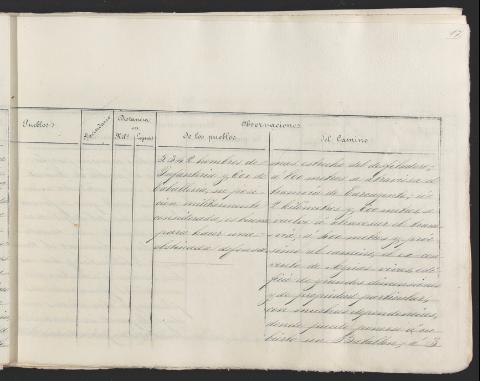 17
Pueblos
Vecindario
Distancia
en
Kils Leguas
Observaciones
De los pueblos
del Camino
3.342 hombres de
Infantería y de
caballería, su posi
ción militarmente
considerada, es buena
para hacer una
obstinada defensa
mas estrecho del desfiladero,
á 800 metros se atraviesa el
barranco de á
2 kilómetros y 600 metros se
vuelve á atravesar el barran
á 400 metros y pró
simo al camino, el ex-con
vento de Aguas vivas, edi
ficio de grandes dimensiones
y de propiedad particular,
con muchas dependencias,
donde puede ponerse á cu
bierto un Batallón, á 3